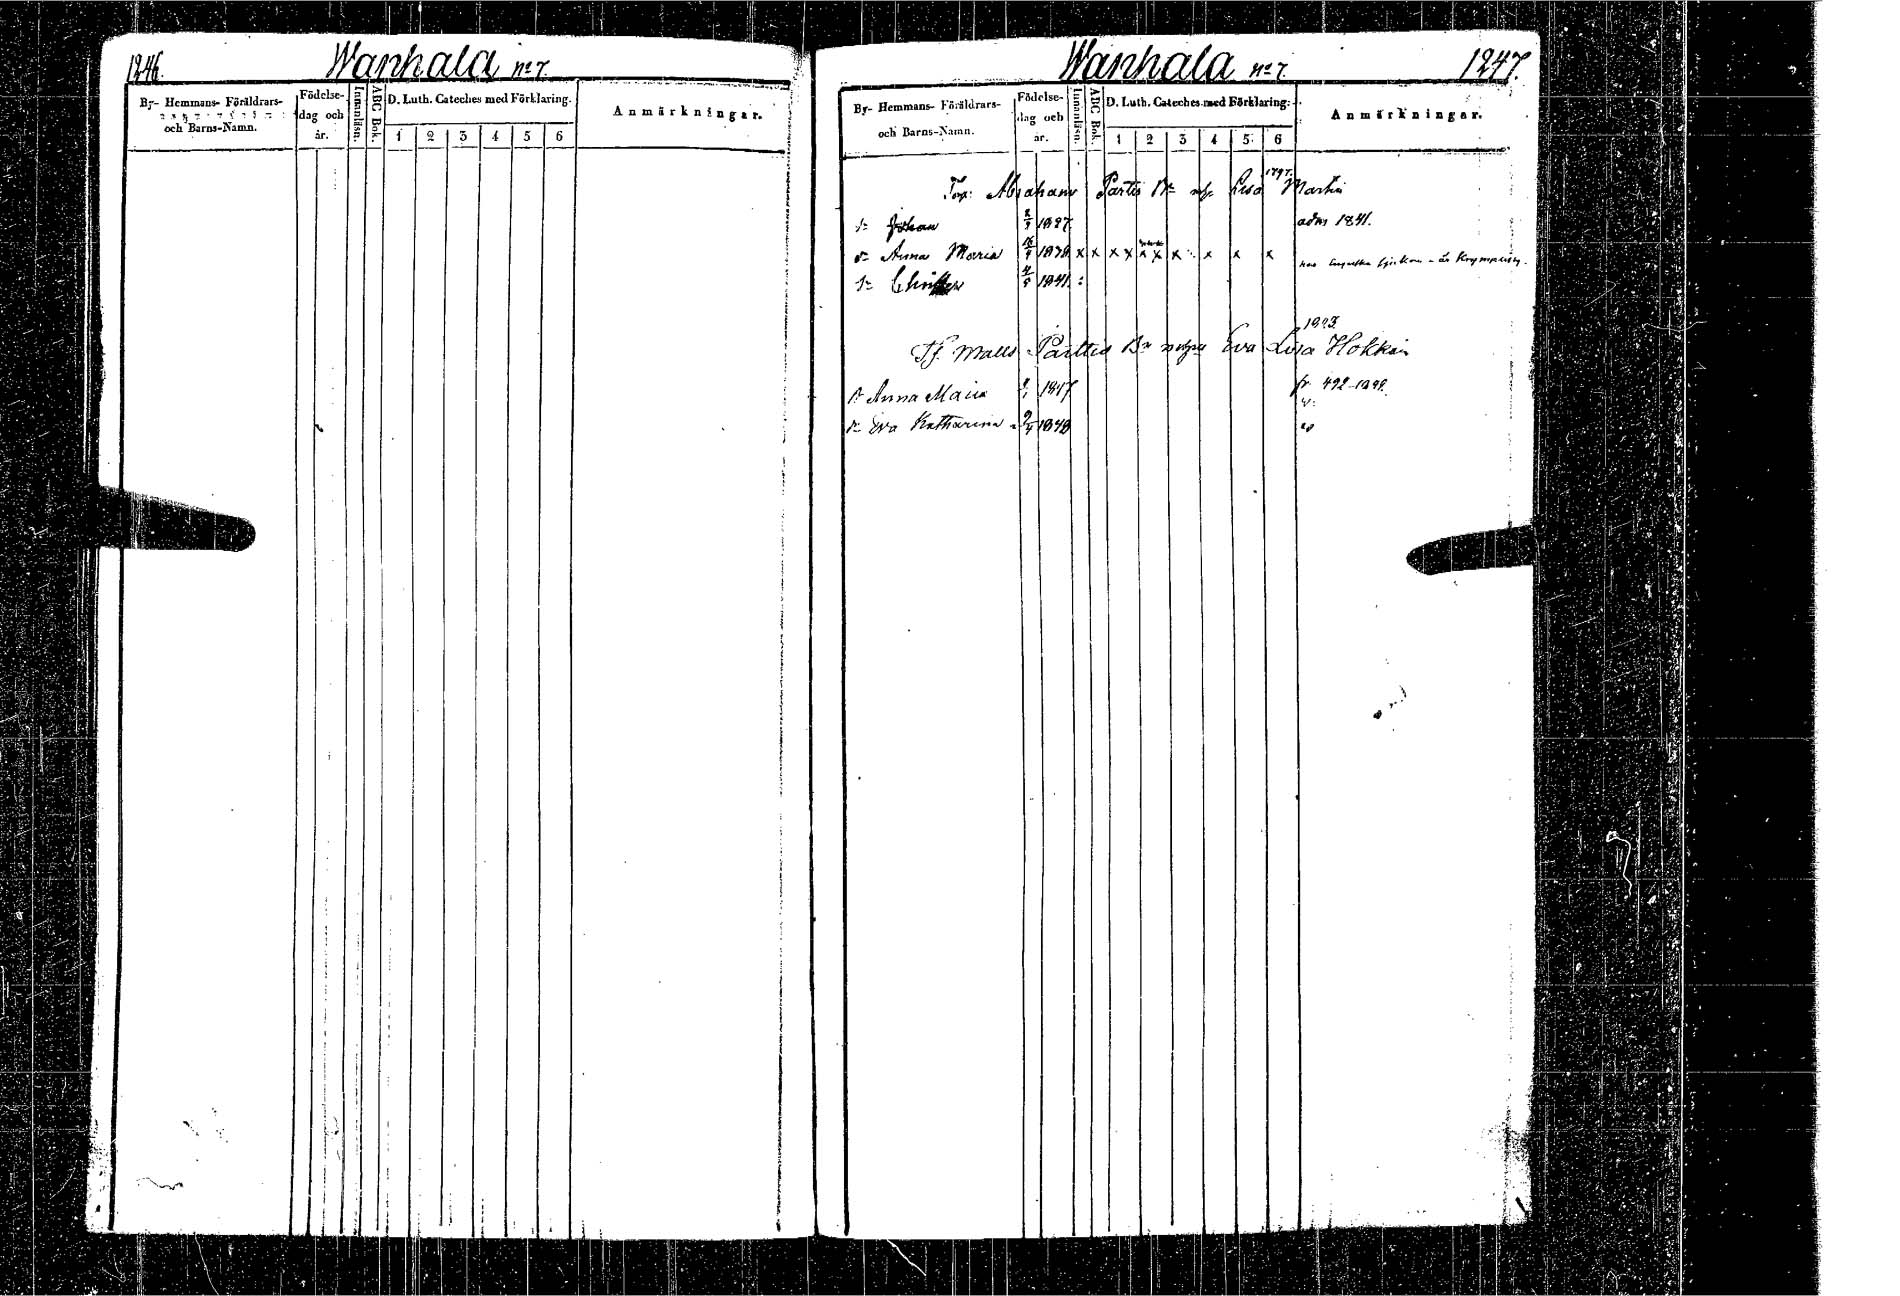 1246.
Wanhala no 7
By- Hemmans- Föräldrars-
och Barns-Namn.
Födelse-
dag och
år.
Innanläsn.
ABC Bok.
D. Luth. Cateches med Förklaring.
1 2 3 4 5 6
Anmärkningar.
Wanhala no 7.
1247.
By- Hemmans- Föräldrars-
och Barns-Namn.
Födelse-
dag och
år.
Innanläsn.
ABC Bok.
D. Luth. Cateches med Förklaring.
1 2 3 4 5 6
Anmärkningar.
1797.
Torp. Abraham Parttis Lisa Martin
Johan 1827. adm 1841.
Anna Maria 1838 x x x x x x x x x x x
1841.
1823
Eva Lisa Hokkain
Anna Maria 1847 fr 492-1848.
Eva Katharina 1848